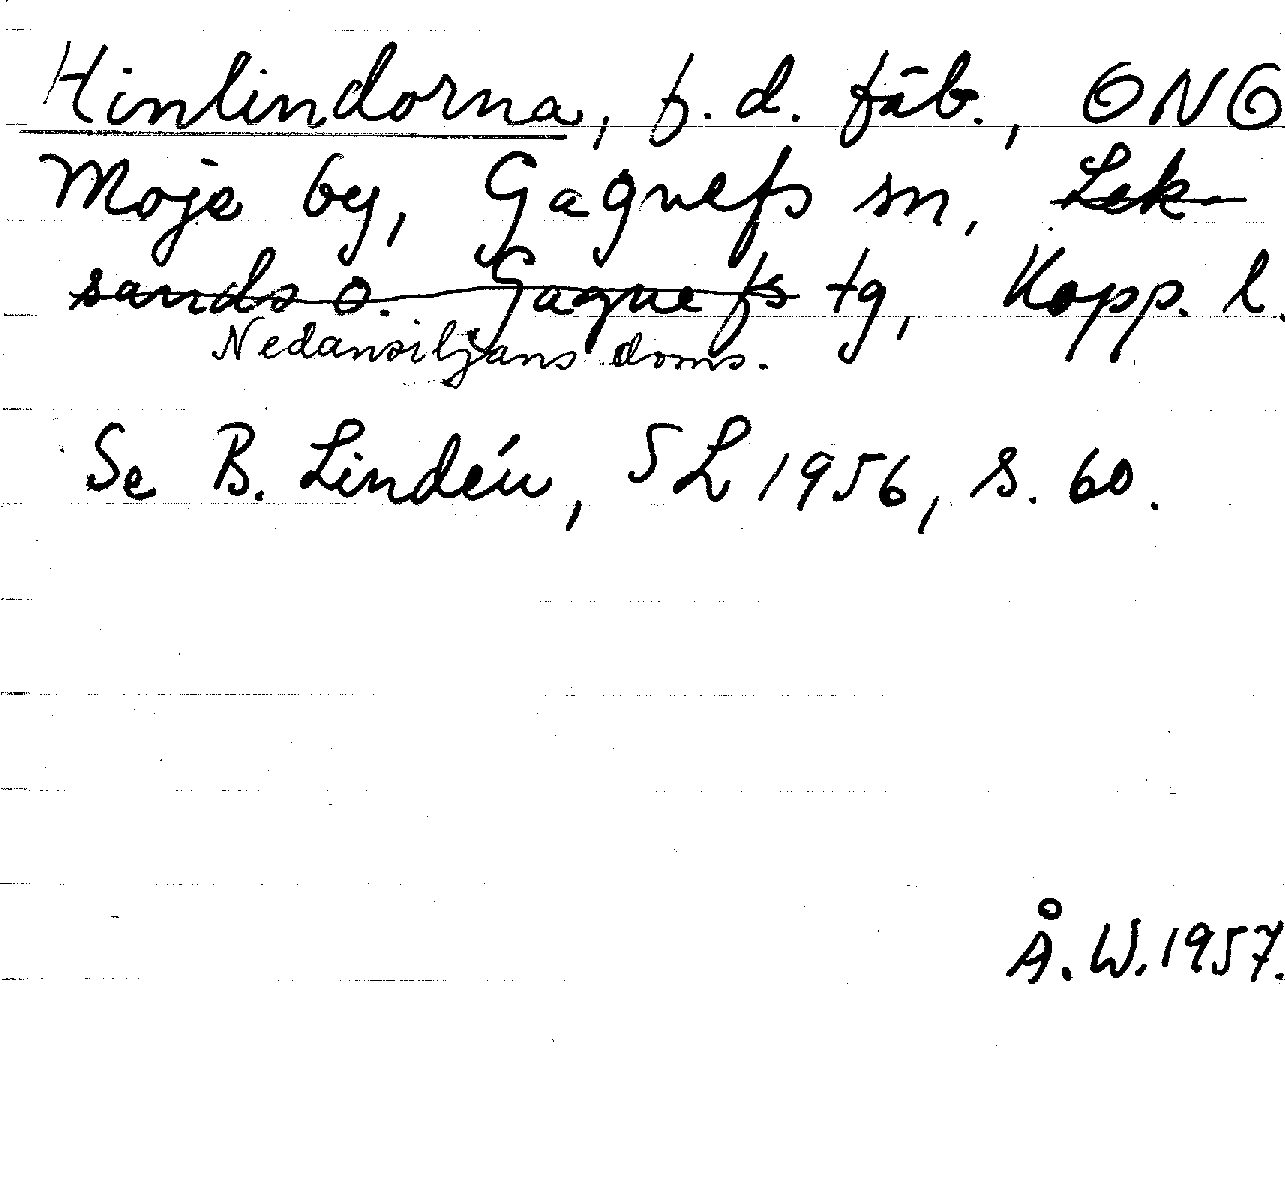 Hinlindorna, f. d. fäb., ONO
Moje by, Gagnefs sn, Lek-
sands o. Gagnefs tg, Kopp. l.
Nedansiljans doms.
Se B. Lindén, SL 1956, s. 60.
Å. W. 1957.